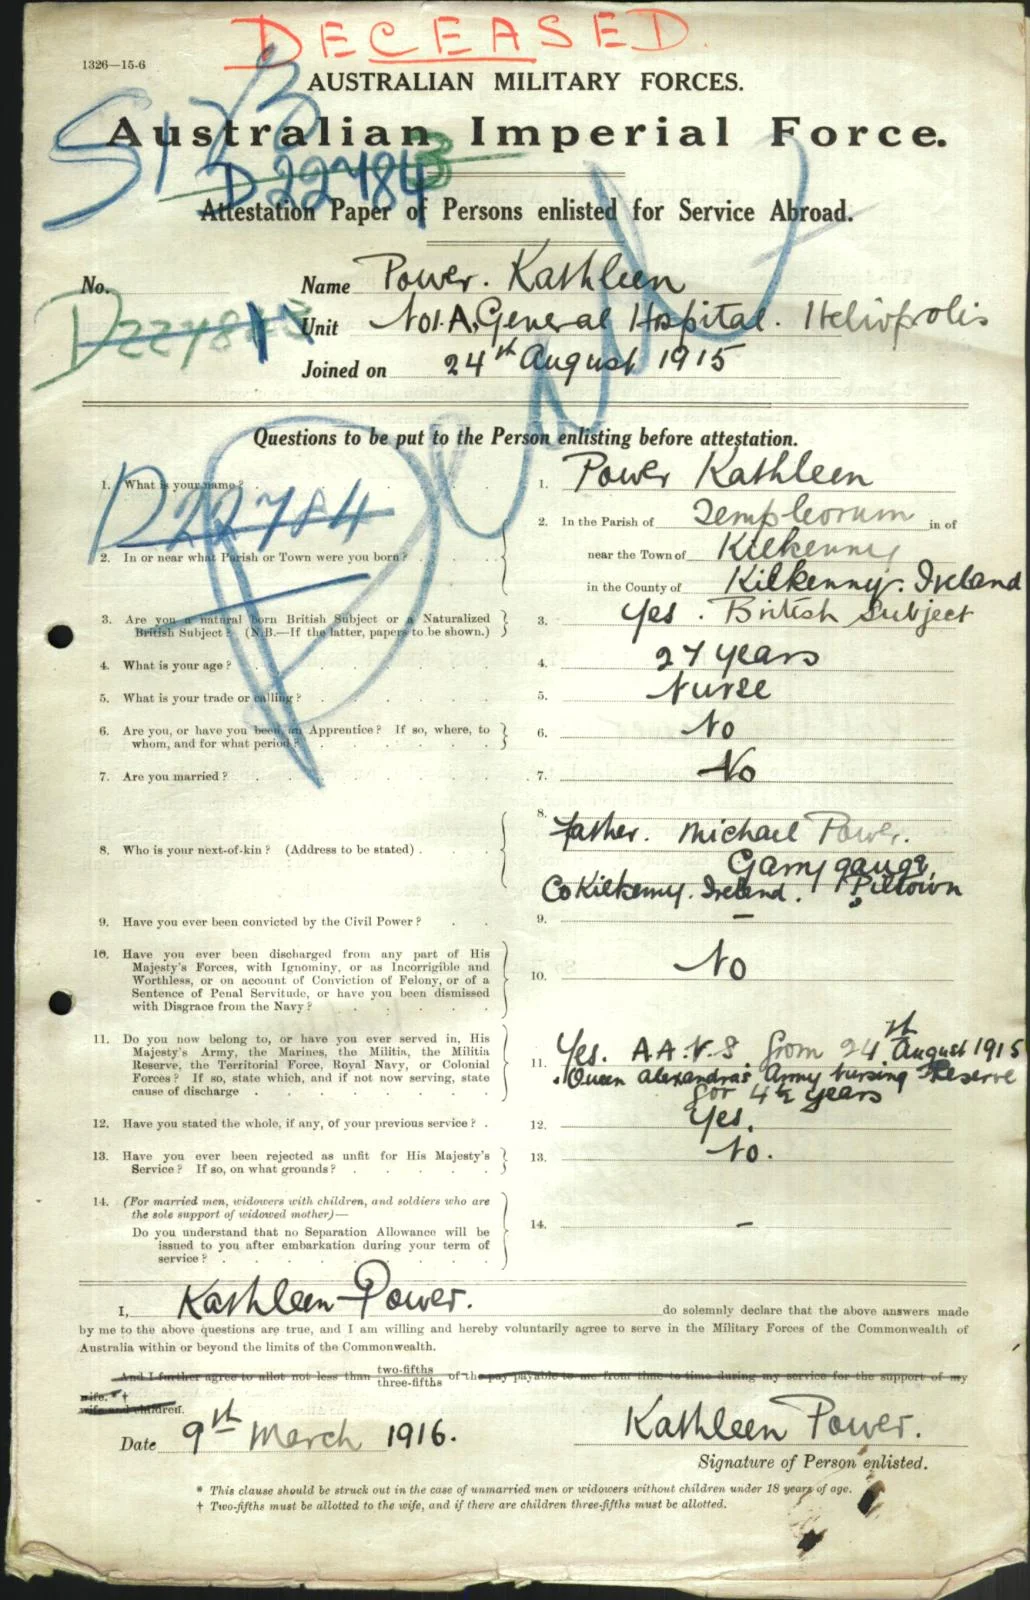 DECEASED.
1326—15-6
AUSTRALIAN MILITARY FORCES.
Australian Imperial Force.
D22484
Attestation Paper of Persons enlisted for Service Abroad.
No. Name Power. Kathleen
Unit No1.A.General Hospital. Heliopolis
Joined on 24th August 1915
Death
Questions to be put to the Person enlisting before attestation.
1. What is your name? 1. Power Kathleen
D22784
2. In or near what Parish or Town were you born? 2. In the Parish of Templeorum in of
near the Town of Kilkenny
in the County of Kilkenny. Ireland
3. Are you a natural born British Subject or a Naturalized
British Subject? (N.B.—If the latter, papers to be shown.) 3. Yes. British Subject
4. What is your age? 4. 27 years
5. What is your trade or calling? 5. Nurse
6. Are you, or have you been, an Apprentice? If so, where, to
whom, and for what period? 6. No
7. Are you married? 7. No
8. Who is your next-of-kin? (Address to be stated) 8. father. Michael Power.
Garrygauge,
Co Kilkenny. Ireland. Piltown
9. Have you ever been convicted by the Civil Power? 9. —
10. Have you ever been discharged from any part of His
Majesty's Forces, with Ignominy, or as Incorrigible and
Worthless, or on account of Conviction of Felony, or of a
Sentence of Penal Servitude, or have you been dismissed
with Disgrace from the Navy? 10. No
11. Do you now belong to, or have you ever served in, His
Majesty's Army, the Marines, the Militia, the Militia
Reserve, the Territorial Force, Royal Navy, or Colonial
Forces? If so, state which, and if not now serving, state
cause of discharge 11. Yes. A.A.N.S. from 24th August 1915
Queen Alexandra's Army Nursing Reserve
for 4½ years
12. Have you stated the whole, if any, of your previous service? 12. Yes.
13. Have you ever been rejected as unfit for His Majesty's
Service? If so, on what grounds? 13. No.
14. (For married men, widowers with children, and soldiers who are
the sole support of widowed mother)—
Do you understand that no Separation Allowance will be
issued to you after embarkation during your term of
service? 14. —
I, Kathleen Power. do solemnly declare that the above answers made
by me to the above questions are true, and I am willing and hereby voluntarily agree to serve in the Military Forces of the Commonwealth of
Australia within or beyond the limits of the Commonwealth.
And I further agree to allot not less than two-fifths three-fifths of the pay payable to me from time to time during my service for the support of my
wife.*†
wife and children.
Date 9th March 1916. Kathleen Power.
Signature of Person enlisted.
* This clause should be struck out in the case of unmarried men or widowers without children under 18 years of age.
† Two-fifths must be allotted to the wife, and if there are children three-fifths must be allotted.